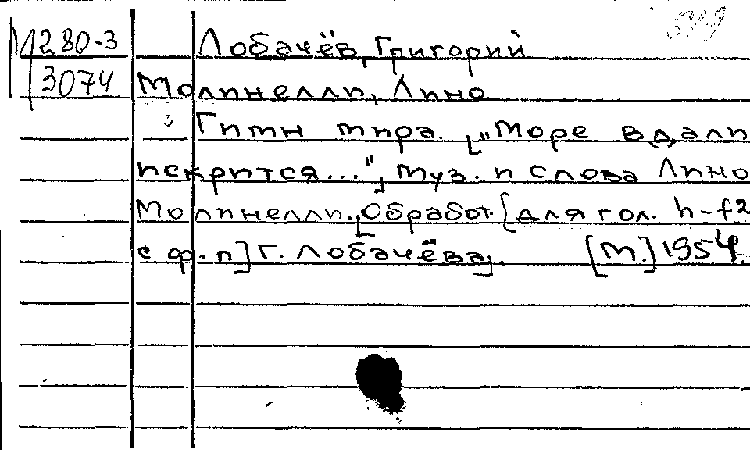 М 280-3 Лобачёв, Григорий
3074 Молинелли, Лино
Гимн мира. ["Море вдали
искрится..."] Муз. и слова Лино
Молинелли. [Обработ. [для гол. h-f2
с ф.-п] Г. Лобачёва]. [М.] 1954.